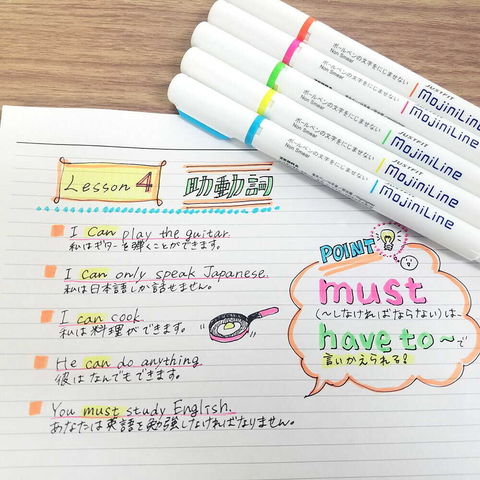 ボールペンの文字をにじませない
Non Smear
JUSTFIT
MojiniLine
ボールペンの文字をにじませない
Non Smear
JUSTFIT
MojiniLine
ボールペンの文字をにじませない
Non Smear
JUSTFIT
MojiniLine
ボールペンの文字をにじませない
Non Smear
JUSTFIT
MojiniLine
ボールペンの文字をにじませない
Non Smear
JUSTFIT
MojiniLine
Lesson 4
助動詞
I can play the guitar.
私はギターを弾くことができます。
I can only speak Japanese.
私は日本語しか話せません。
I can cook
私は料理ができます。
He can do anything.
彼はなんでもできます。
You must study English.
あなたは英語を勉強しなければなりません。
POINT
must
(〜しなければならない)は、
have to〜で
言いかえられる!